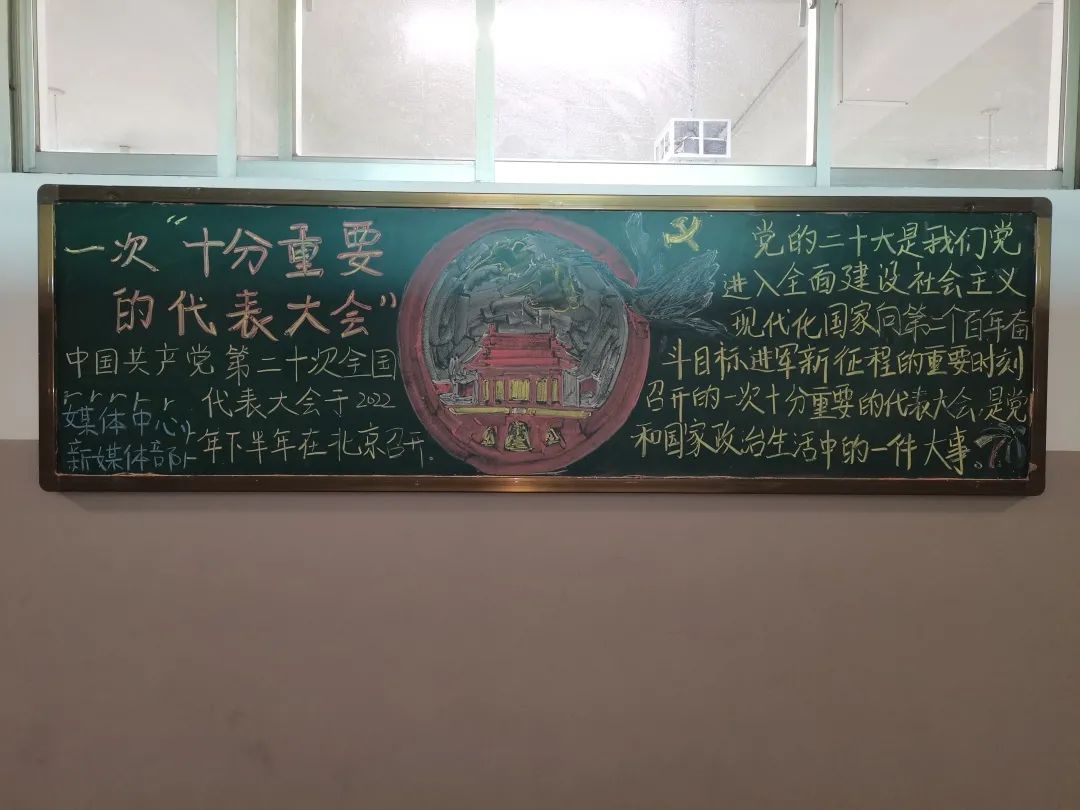 一次“十分重要
的代表大会”
中国共产党第二十次全国
代表大会于2022
年下半年在北京召开.
媒体中心
新媒体部
党的二十大是我们党
进入全面建设社会主义
现代化国家向第二个百年奋
斗目标进军新征程的重要时刻
召开的一次十分重要的代表大会,是党
和国家政治生活中的一件大事。